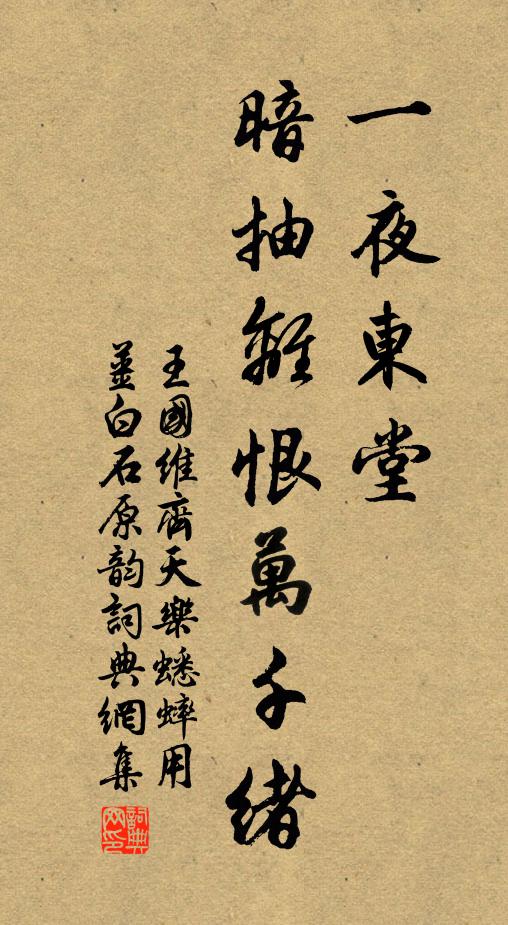 一夜東堂
暗抽離恨萬千緒
王國維齊天樂蟋蟀用
姜白石原韵詞典網集
詞典網印